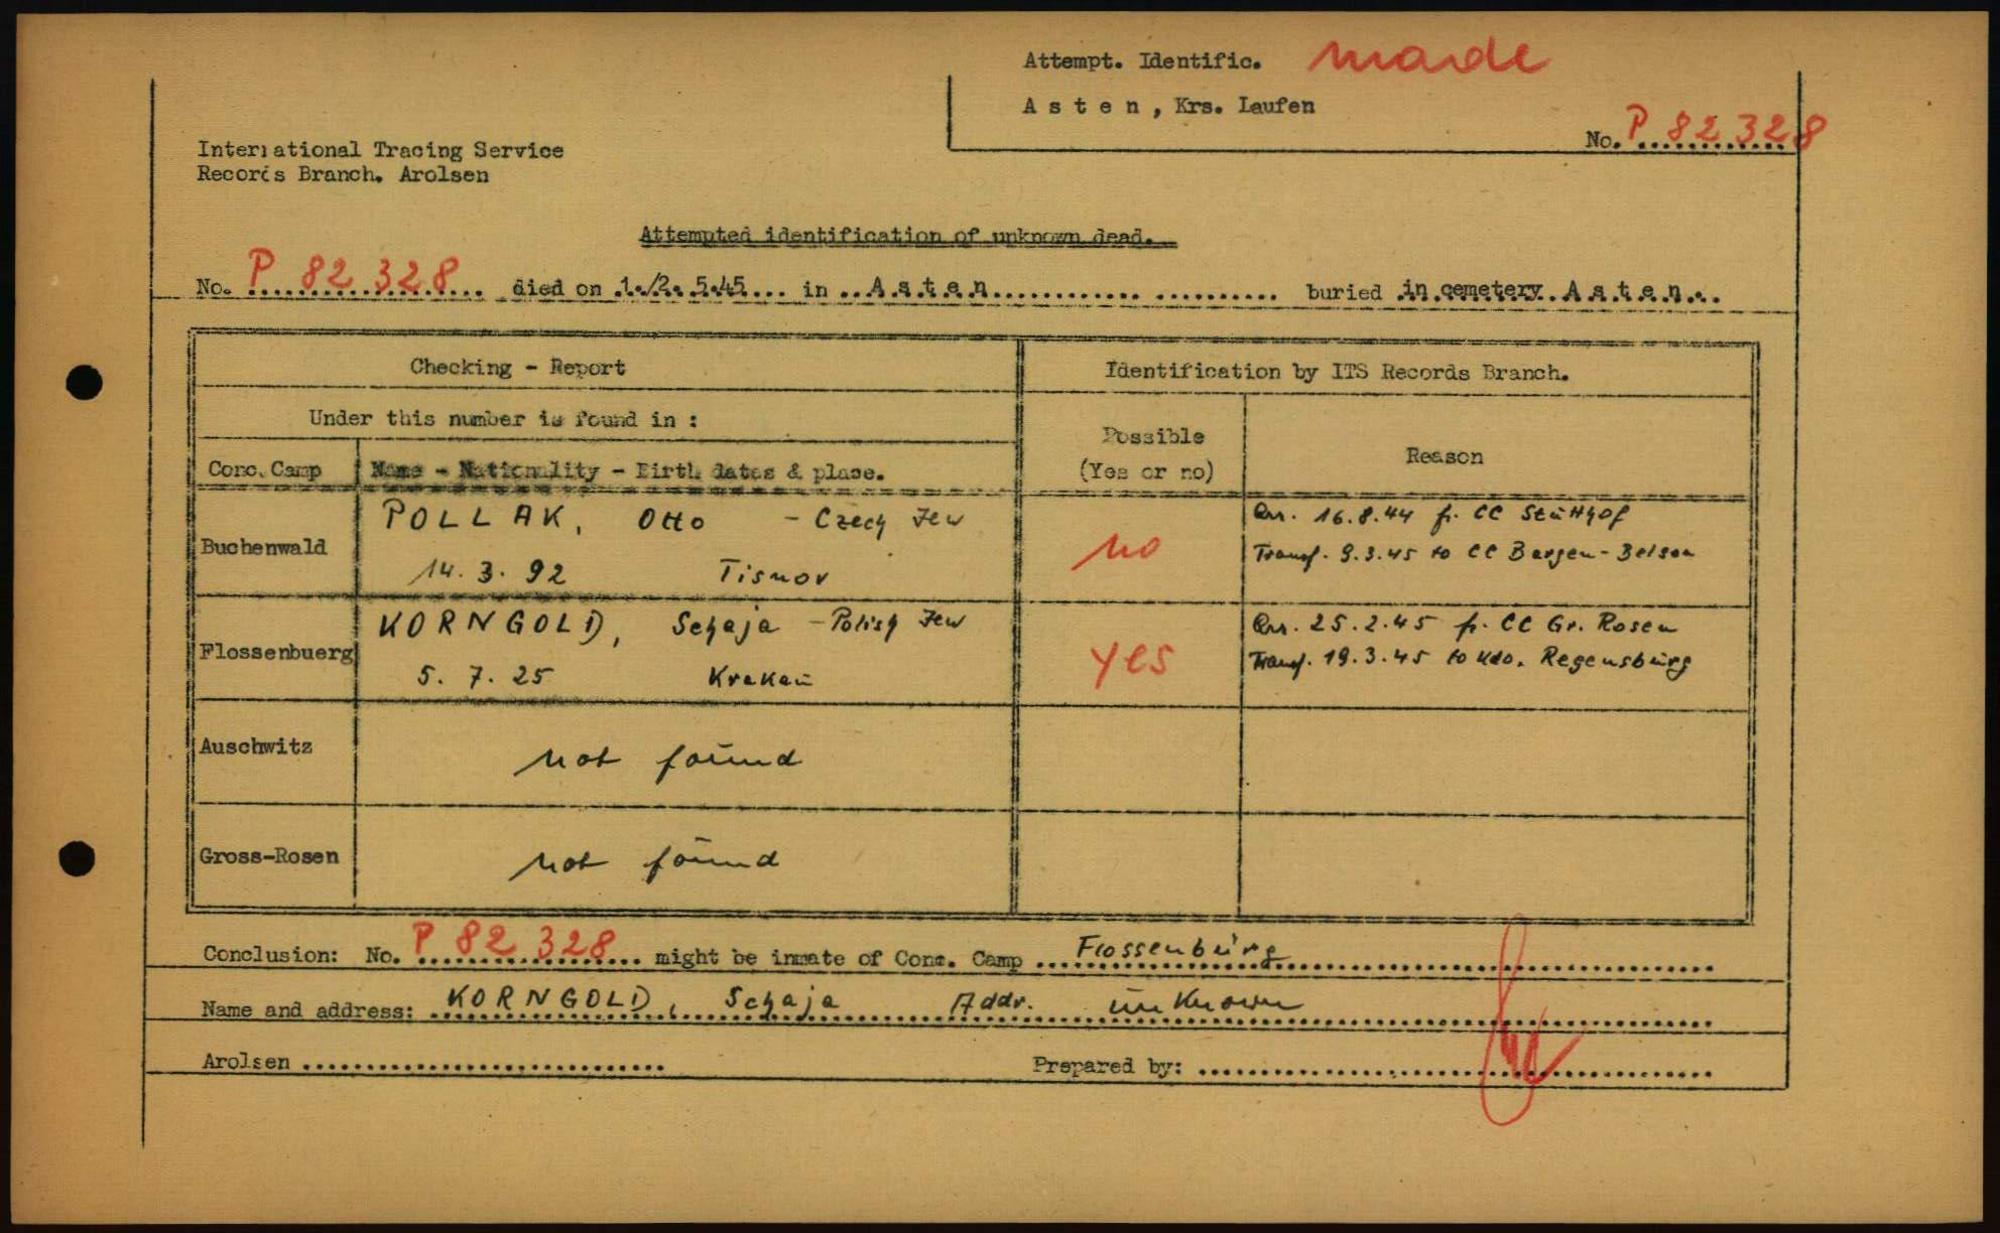 Attempt. Identific. made
A s t e n , Krs. Laufen
No. P 82 328
International Tracing Service
Records Branch. Arolsen
Attempted identification of unknown dead.
No. P 82 328 died on 1./2. 5.45 in A s t e n buried in cemetery A s t e n
Checking - Report
Identification by ITS Records Branch.
Under this number is found in :
Possible
(Yes or no)
Reason
Conc. Camp
Name - Nationality - Birth dates & place.
Buchenwald
POLLAK, Otto - Czech Jew
14. 3. 92 Tisnov
no
Arr. 16.8.44 fr. CC Stutthof
Transf. 9.3.45 to CC Bergen-Belsen
Flossenbuerg
KORNGOLD, Schaja - Polish Jew
5. 7. 25 Krakau
yes
Arr. 25.2.45 fr. CC Gr. Rosen
Transf. 19.3.45 to Kdo. Regensburg
Auschwitz
not found
Gross-Rosen
not found
Conclusion: No. P 82 328 might be inmate of Conc. Camp Flossenbürg
Name and address: KORNGOLD, Schaja Addr. unknown
Arolsen
Prepared by: